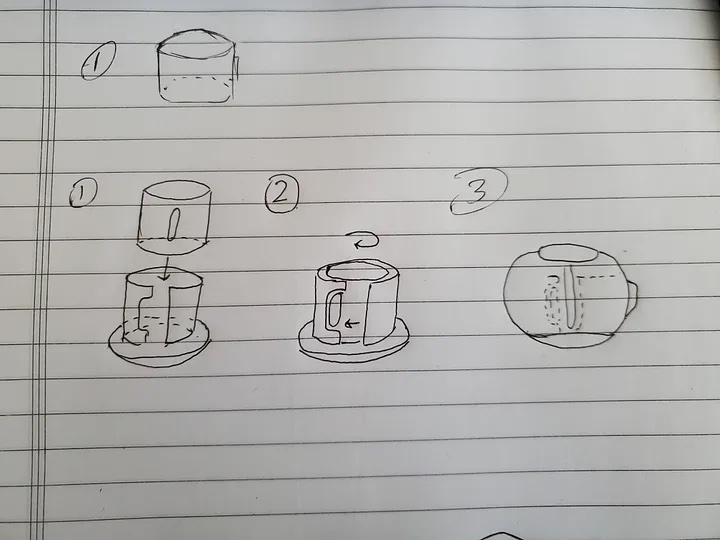 1
1 2 3